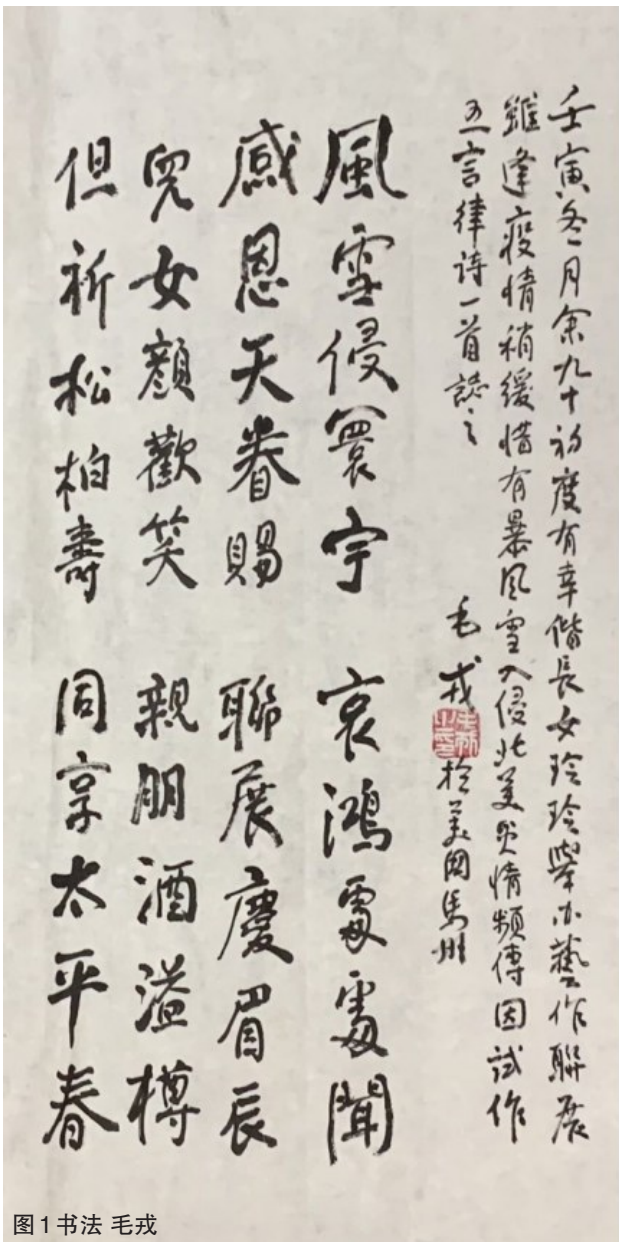 壬寅冬月余九十初度有幸偕長女玲玲舉办藝作聯展
雖逢疫情稍緩惜有暴风雪入侵北美災情頻傳因試作
五言律诗一首誌之
風雪侵寰宇 哀鴻處處聞
感恩天眷賜 聯展慶眉辰
兒女顏歡笑 親朋酒溢樽
但祈松柏壽 同享太平春
毛戎
於美国馬州
图1书法 毛戎